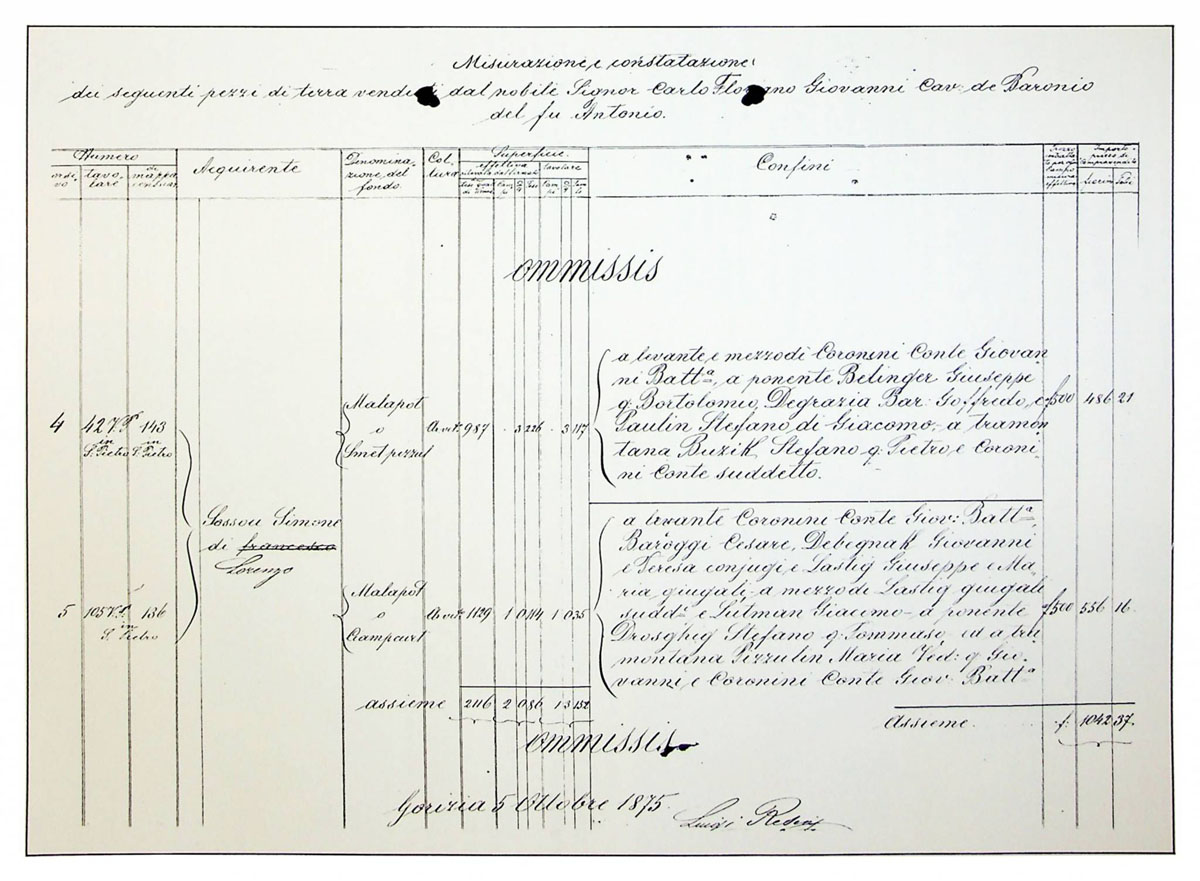 Misurazione e constatazione
dei seguenti pezzi di terra venduti dal nobile Signor Carlo Floriano Giovanni Cav: de Baronio
del fu Antonio.
Numero
tavolare
di mappa
Acquirente
Denominazione del fondo
Coltura
Superficie
effettiva
tavolare
Confini
Fiorini
Soldi
ommissis
4
427
in S. Pietro
143
in S. Pietro
Malapot
o
Smet pizzul
987
3
226
3
117
a levante e mezzodì Coronini Conte Giovan
ni Battª, a ponente Betinger Giuseppe
q. Bortolomio, Degrazia Bar: Goffredo, e
Paulin Stefano di Giacomo, a tramon
tana Buzik Stefano q. Pietro e Coroni
ni Conte suddetto.
f. 500
486
21
Sossou Simone
di francesco
Lorenzo
5
1057
in
S. Pietro
136
Malapot
o
Ciampurt
1129
1
0
1
035
a levante Coronini Conte Giov: Battª,
Baroggi Cesare, Debegnak Giovanni
e Teresa conjugi e Lastig Giuseppe e Ma
ria giugali - a mezzodì Lastig giugali
sudd: e Lutman Giacomo - a ponente
Drosghig Stefano q. Tommaso, ed a tra
montana Pizzulin Maria Ved: q. Gio
vanni, e Coronini Conte Giov: Battª
f. 500
556
16
assieme
2116
2
086
1
3
152
Assieme
f.
1042
37.
ommissis
Gorizia 5 Ottobre 1875.
Luigi